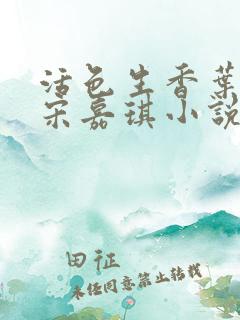 活色生香葉
宋嘉琪小說
田征
未经同意禁止转载